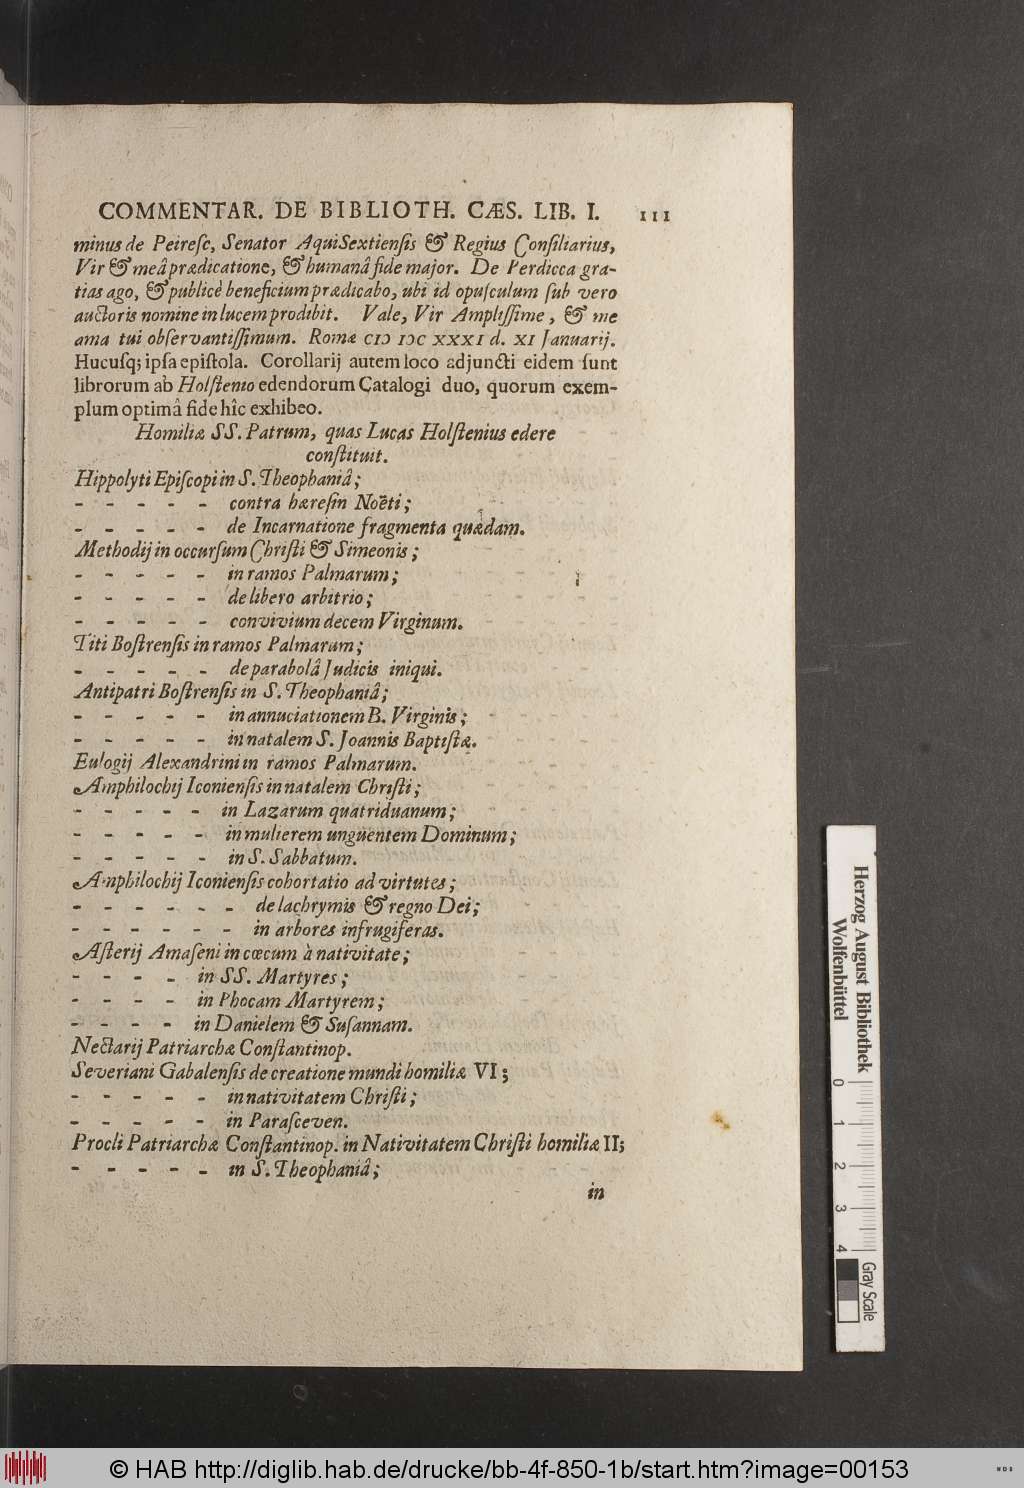 COMMENTAR. DE BIBLIOTH. CÆS. LIB. I. 111
minus de Peiresc, Senator AquiSextiensis & Regius Consiliarius,
Vir & meâ prædicatione, & humanâ fide major. De Perdicca gra-
tias ago, & publicè beneficium prædicabo, ubi id opusculum sub vero
auctoris nomine in lucem prodibit. Vale, Vir Amplissime, & me
ama tui observantissimum. Romæ CIↃ IↃC XXXI d. XI Januarij.
Hucusq; ipsa epistola. Corollarij autem loco adjuncti eidem sunt
librorum ab Holstenio edendorum Catalogi duo, quorum exem-
plum optimâ fide hîc exhibeo.
Homiliæ SS. Patrum, quas Lucas Holstenius edere
constituit.
Hippolyti Episcopi in S. Theophaniâ;
- - - - - contra hæresin Noëti;
- - - - - de Incarnatione fragmenta quædam.
Methodij in occursum Christi & Simeonis;
- - - - - in ramos Palmarum;
- - - - - de libero arbitrio;
- - - - - convivium decem Virginum.
Titi Bostrensis in ramos Palmarum;
- - - - - de parabolâ Judicis iniqui.
Antipatri Bostrensis in S. Theophaniâ;
- - - - - in annuciationem B. Virginis;
- - - - - in natalem S. Joannis Baptistæ.
Eulogij Alexandrini in ramos Palmarum.
Amphilochij Iconiensis in natalem Christi;
- - - - - in Lazarum quatriduanum;
- - - - - in mulierem unguentem Dominum;
- - - - - in S. Sabbatum.
Amphilochij Iconiensis cohortatio ad virtutes;
- - - - - - de lachrymis & regno Dei;
- - - - - - in arbores infrugiferas.
Asterij Amaseni in cœcum à nativitate;
- - - - in SS. Martyres;
- - - - in Phocam Martyrem;
- - - - in Danielem & Susannam.
Nectarij Patriarchæ Constantinop.
Severiani Gabalensis de creatione mundi homiliæ VI;
- - - - - in nativitatem Christi;
- - - - - in Parasceven.
Procli Patriarchæ Constantinop. in Nativitatem Christi homiliæ II;
- - - - - in S. Theophaniâ;
in
Herzog August Bibliothek
Wolfenbüttel
0 1 2 3 4
Gray Scale
© HAB http://diglib.hab.de/drucke/bb-4f-850-1b/start.htm?image=00153